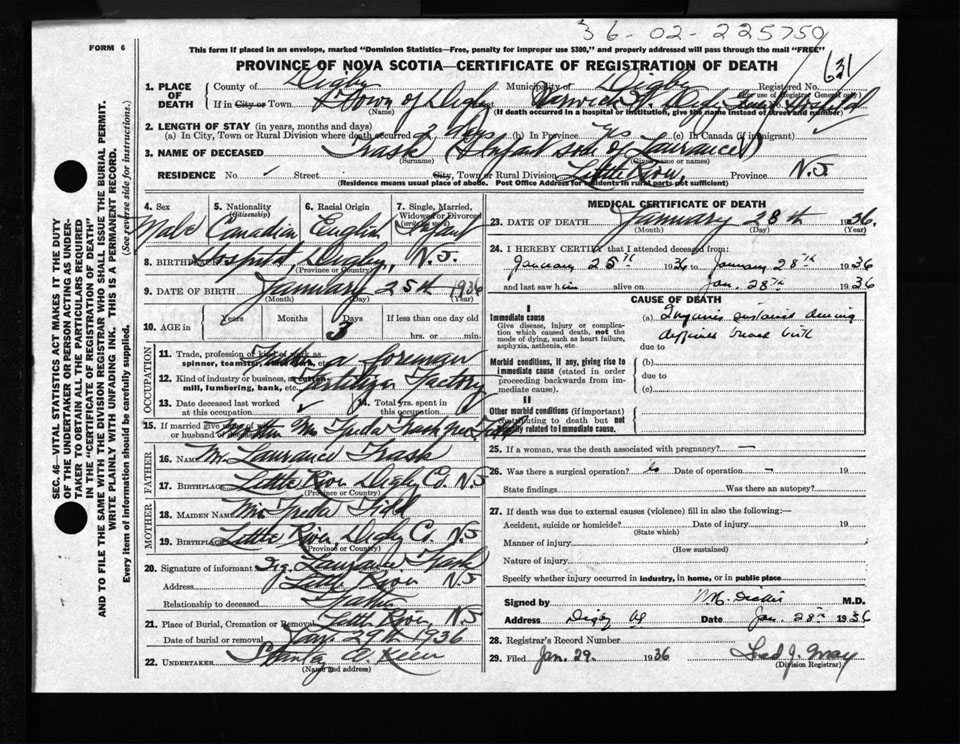 36-02-225750
FORM 6
This form if placed in an envelope, marked "Dominion Statistics—Free, penalty for improper use $300," and properly addressed will pass through the mail "FREE"
PROVINCE OF NOVA SCOTIA—CERTIFICATE OF REGISTRATION OF DEATH
631
1. PLACE OF DEATH
County of Digby Municipality of Digby Registered No.
(For use of Registrar General only)
If in City or Town Town of Digby Warwick St. Digby Hospital
(Name) (If death occurred in a hospital or institution, give the name instead of street and number)
2. LENGTH OF STAY (in years, months and days)
(a) In City, Town or Rural Division where death occurred 3 days (b) In Province yes (c) In Canada (if immigrant)
3. NAME OF DECEASED Trask (Infant son of Laurance)
(Surname) (Given name or names)
RESIDENCE No. Street City, Town or Rural Division Little River, Province N.S
(Residence means usual place of abode. Post Office Address for residents in rural parts not sufficient)
4. Sex Male
5. Nationality (Citizenship) Canadian
6. Racial Origin English
7. Single, Married, Widowed or Divorced (write the word) Infant
8. BIRTHPLACE Hospital, Digby, N.S.
(Province or Country)
9. DATE OF BIRTH January 25th 1936
(Month) (Day) (Year)
10. AGE in Years Months Days If less than one day old
3 hrs. or min.
OCCUPATION
11. Trade, profession or kind of work as spinner, teamster, office clerk, etc. Father a foreman
12. Kind of industry or business, as cotton mill, lumbering, bank, etc. Fertilizer Factory
13. Date deceased last worked at this occupation
14. Total yrs. spent in this occupation
15. If married give name of wife or husband of deceased Mother Mrs Freda Trash
FATHER
16. Name Mr Laurance Trask
17. Birthplace Little River Digby Co. N.S
(Province or Country)
MOTHER
18. Maiden Name Mrs Freda
19. Birthplace Little River, Digby Co N.S
(Province or Country)
20. Signature of informant Sig. Laurance Trask
Address Little River N.S
Relationship to deceased Father
21. Place of Burial, Cremation or Removal Little River, N.S
Date of burial or removal Jan. 29th 1936
22. UNDERTAKER Stanley
(Name and address)
MEDICAL CERTIFICATE OF DEATH
23. DATE OF DEATH January 28th 1936.
(Month) (Day) (Year)
24. I HEREBY CERTIFY that I attended deceased from:
January 25th 1936 to January 28th 1936
and last saw him alive on Jan. 28th 1936
CAUSE OF DEATH
I
Immediate cause
Give disease, injury or complication which caused death, not the mode of dying, such as heart failure, asphyxia, asthenia, etc.
(a) Injuries sustained during
difficult breech birth
due to
Morbid conditions, if any, giving rise to immediate cause (stated in order proceeding backwards from immediate cause).
(b)
due to
(c)
II
Other morbid conditions (if important) contributing to death but not causally related to immediate cause.
25. If a woman, was the death associated with pregnancy? —
26. Was there a surgical operation? Date of operation – 19
State findings Was there an autopsy?
27. If death was due to external causes (violence) fill in also the following:—
Accident, suicide or homicide? Date of injury 19
(State which)
Manner of injury
(How sustained)
Nature of injury
Specify whether injury occurred in industry, in home, or in public place
Signed by M.D.
Address Digby NS Date Jan. 28th 1936
28. Registrar's Record Number
29. Filed Jan. 29. 1936 Fred J.
(Division Registrar)
SEC. 46—VITAL STATISTICS ACT MAKES IT THE DUTY
OF THE UNDERTAKER OR PERSON ACTING AS UNDER-
TAKER TO OBTAIN ALL THE PARTICULARS REQUIRED
IN THE "CERTIFICATE OF REGISTRATION OF DEATH"
AND TO FILE THE SAME WITH THE DIVISION REGISTRAR WHO SHALL ISSUE THE BURIAL PERMIT.
WRITE PLAINLY WITH UNFADING INK. THIS IS A PERMANENT RECORD.
Every item of information should be carefully supplied. (See reverse side for instructions.)